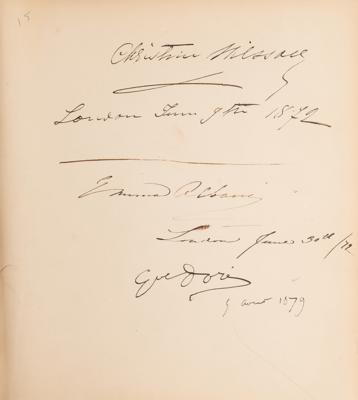 Christine Nilsson
London June 9th 1872
Emma Albani
London June 30th/72
Gve Doré
9 aout 1879